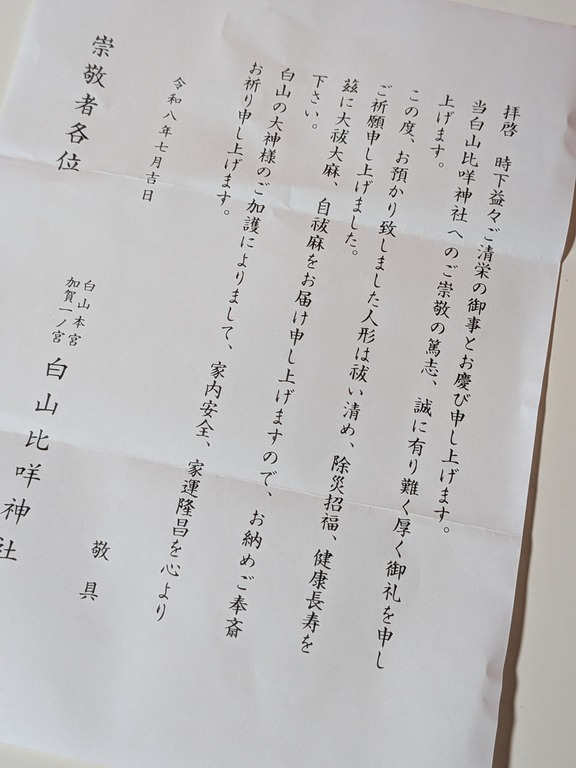 拝啓　時下益々ご清栄の御事とお慶び申し上げます。
当白山比咩神社へのご崇敬の篤志、誠に有り難く厚く御礼を申し
上げます。
この度、お預かり致しました人形は祓い清め、除災招福、健康長寿を
ご祈願申し上げました。
茲に大祓大麻、自祓麻をお届け申し上げますので、お納めご奉斎
下さい。
白山の大神様のご加護によりまして、家内安全、家運隆昌を心より
お祈り申し上げます。
敬具
令和八年七月吉日
白山本宮
加賀一ノ宮
白山比咩神社
崇敬者各位